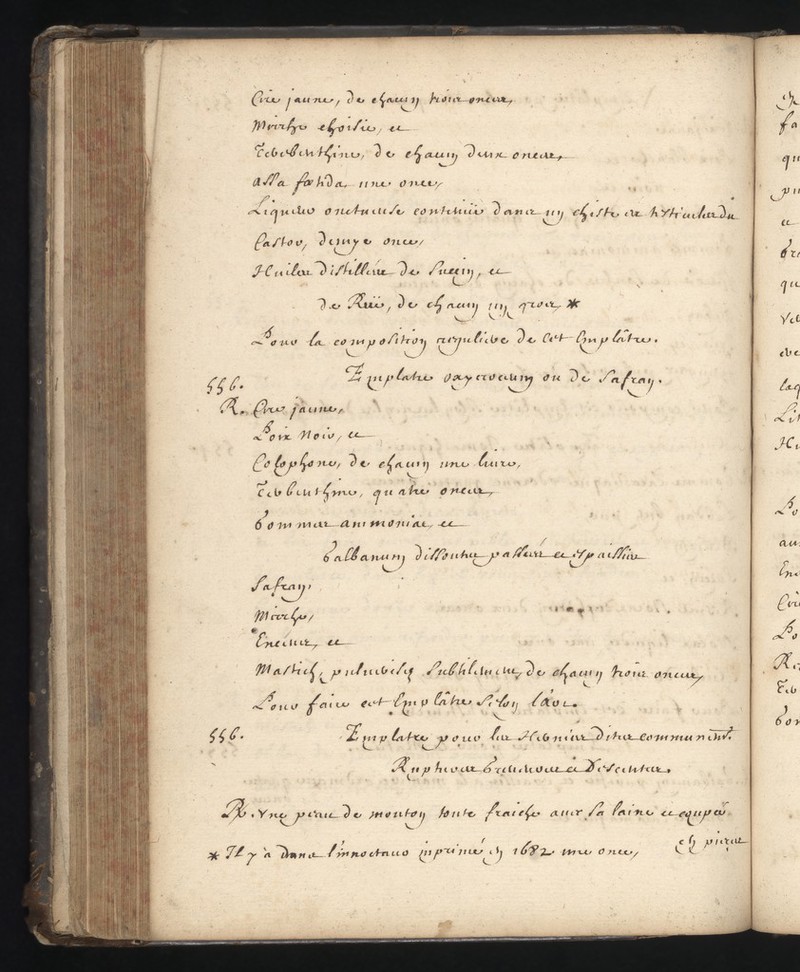 Cire jaune, de chacun trois onces,
Mirrhe choisie, et
Terebenthine, de chacun deux onces,
assa fœtida, une once,
Liqueur onctueuse contenüe dans un chiste es testicules du
Castor, demye once,
Huiles distillées de Succin, et
de Rüe, de chacun un gros *
Pour la composition reguliere de Cet Emplâtre.
556. Emplatre oxycroceum ou De Safran.
R. Cire jaune,
Poix Noir, et
Colophone, de chacun une livre,
Terebenthine, quatre onces,
Gommes ammoniac, et
Galbanum dissoutes passées et espaissies
Safran,
Mirrhe,
Encens, et
Mastich, pulverisés Subtilement, de chacun trois onces,
Pour faire cet Emplâtre Selon l'art.
556. Emplatre pour les Hernies dites communemt.
Ruptures Greveures et Descentes.
R. Vne peau de mouton toute fraiche avec Sa laine et coupée
en pieces
* Il y a dans l'innoctavo inprimé en 1682 une once,